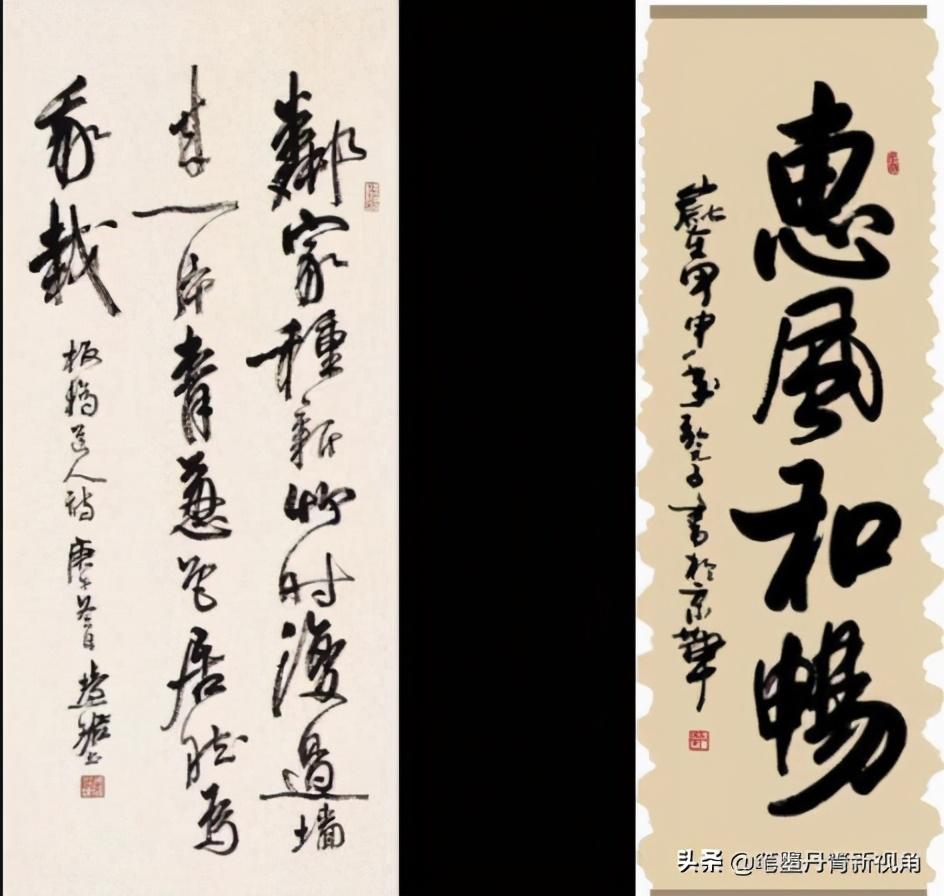 鄰家種新竹时復過墻
來一片青葱色居然焉
我栽
板橋道人詩 庚午
惠風和暢
歲在甲申年 子書於京華
头条 @笔墨丹青新视角